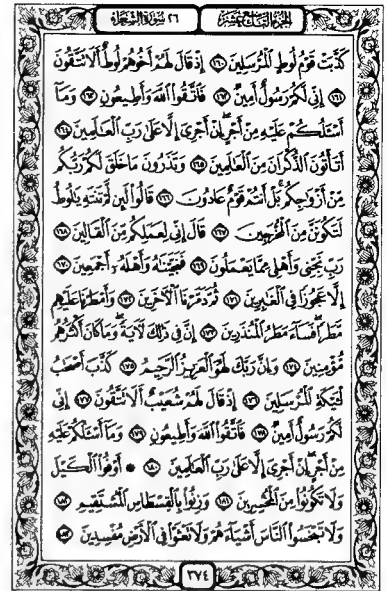 الجزء التاسع عشر ٢٦ سورة الشعراء
كَذَّبَتْ قَوْمُ لُوطٍ الْمُرْسَلِينَ ١٦٠ إِذْ قَالَ لَهُمْ أَخُوهُمْ لُوطٌ أَلَا تَتَّقُونَ
١٦١ إِنِّي لَكُمْ رَسُولٌ أَمِينٌ ١٦٢ فَاتَّقُوا اللَّهَ وَأَطِيعُونِ ١٦٣ وَمَا
أَسْأَلُكُمْ عَلَيْهِ مِنْ أَجْرٍ إِنْ أَجْرِيَ إِلَّا عَلَىٰ رَبِّ الْعَالَمِينَ ١٦٤
أَتَأْتُونَ الذُّكْرَانَ مِنَ الْعَالَمِينَ ١٦٥ وَتَذَرُونَ مَا خَلَقَ لَكُمْ رَبُّكُم
مِّنْ أَزْوَاجِكُم بَلْ أَنتُمْ قَوْمٌ عَادُونَ ١٦٦ قَالُوا لَئِن لَّمْ تَنتَهِ يَا لُوطُ
لَتَكُونَنَّ مِنَ الْمُخْرَجِينَ ١٦٧ قَالَ إِنِّي لِعَمَلِكُم مِّنَ الْقَالِينَ ١٦٨
رَبِّ نَجِّنِي وَأَهْلِي مِمَّا يَعْمَلُونَ ١٦٩ فَنَجَّيْنَاهُ وَأَهْلَهُ أَجْمَعِينَ ١٧٠
إِلَّا عَجُوزًا فِي الْغَابِرِينَ ١٧١ ثُمَّ دَمَّرْنَا الْآخَرِينَ ١٧٢ وَأَمْطَرْنَا عَلَيْهِم
مَّطَرًا فَسَاءَ مَطَرُ الْمُنذَرِينَ ١٧٣ إِنَّ فِي ذَٰلِكَ لَآيَةً وَمَا كَانَ أَكْثَرُهُم
مُّؤْمِنِينَ ١٧٤ وَإِنَّ رَبَّكَ لَهُوَ الْعَزِيزُ الرَّحِيمُ ١٧٥ كَذَّبَ أَصْحَابُ
لْـَٔيْكَةِ الْمُرْسَلِينَ ١٧٦ إِذْ قَالَ لَهُمْ شُعَيْبٌ أَلَا تَتَّقُونَ ١٧٧ إِنِّي
لَكُمْ رَسُولٌ أَمِينٌ ١٧٨ فَاتَّقُوا اللَّهَ وَأَطِيعُونِ ١٧٩ وَمَا أَسْأَلُكُمْ عَلَيْهِ
مِنْ أَجْرٍ إِنْ أَجْرِيَ إِلَّا عَلَىٰ رَبِّ الْعَالَمِينَ ١٨٠ ۞ أَوْفُوا الْكَيْلَ
وَلَا تَكُونُوا مِنَ الْمُخْسِرِينَ ١٨١ وَزِنُوا بِالْقِسْطَاسِ الْمُسْتَقِيمِ ١٨٢
وَلَا تَبْخَسُوا النَّاسَ أَشْيَاءَهُمْ وَلَا تَعْثَوْا فِي الْأَرْضِ مُفْسِدِينَ ١٨٣
٣٧٤